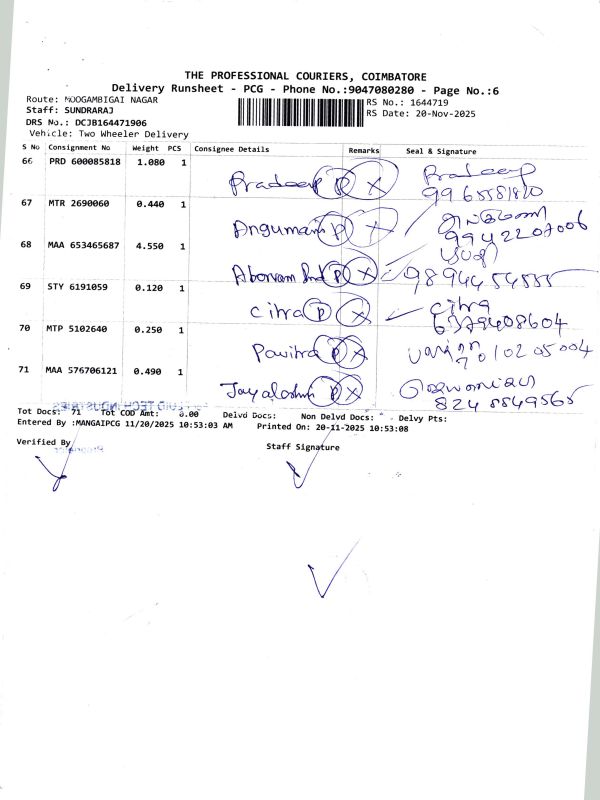 THE PROFESSIONAL COURIERS, COIMBATORE
Delivery Runsheet - PCG - Phone No.:9047080280 - Page No.:6
Route: MOOGAMBIGAI NAGAR RS No.: 1644719
Staff: SUNDRARAJ RS Date: 20-Nov-2025
DRS No.: DCJB164471906
Vehicle: Two Wheeler Delivery
S No Consignment No Weight PCS Consignee Details Remarks Seal & Signature
66 PRD 600085818 1.080 1 Pradeep P X Pradeep
67 MTR 2690060 0.440 1 P X
9942207006
68 MAA 653465687 4.550 1 P X
69 STY 6191059 0.120 1 Citra P X Citra
6379408604
70 MTP 5102640 0.250 1 Pavitra P X
7010205004
71 MAA 576706121 0.490 1 P X
8248849565
Tot Docs: 71 Tot COD Amt: 0.00 Delvd Docs: Non Delvd Docs: Delvy Pts:
Entered By :MANGAIPCG 11/20/2025 10:53:03 AM Printed On: 20-11-2025 10:53:08
Verified By Staff Signature